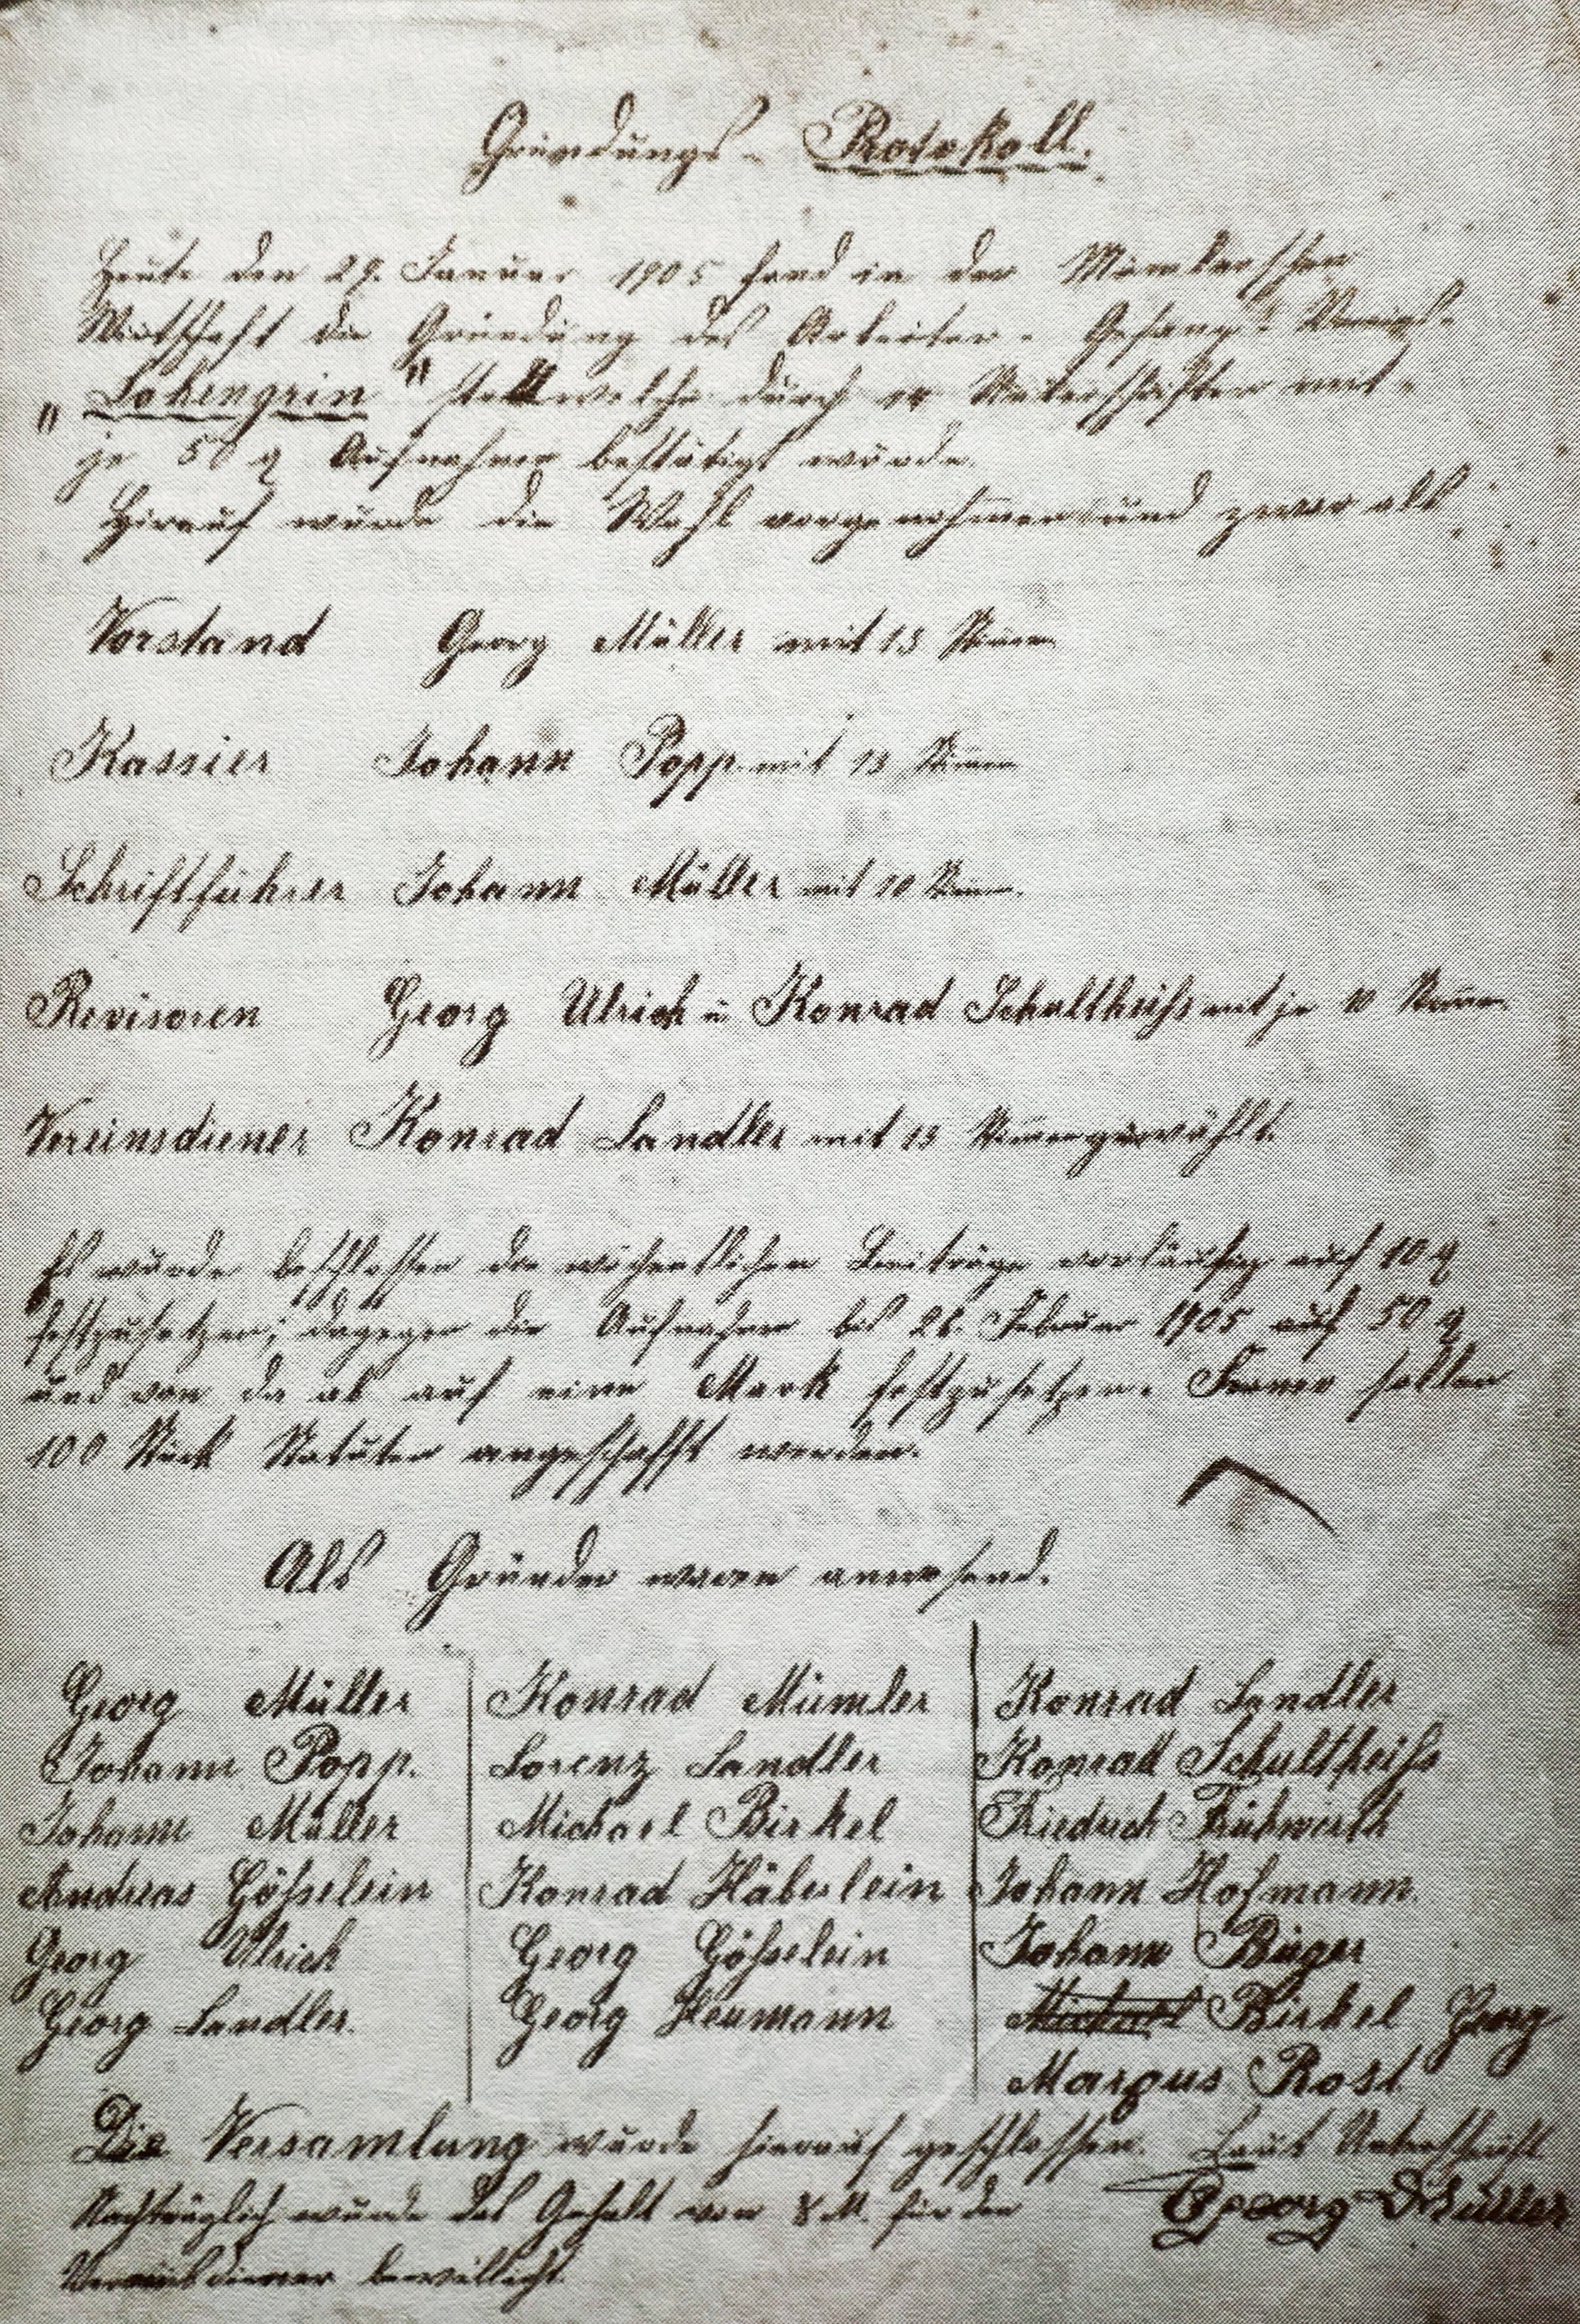 Gründungs- Protokoll.
Heute den 29. Januar 1905 fand in der Mümlerschen
Wirtschaft die Gründung des Arbeiter- Gesang- Vereins-
„Lohengrin" statt welche durch Unterschriften mit-
je 50 ₰ Aufnahme bestätigt wurde.
Hirauf wurde die Wahl vorgenohmen und zwar als
Vorstand Georg Müller mit 13 Stimen
Kassier Johann Popp mit 13 Stimen
Schriftführer Johann Müller mit 10 Stimen.
Revisoren Georg Ulrich u. Konrad Schultheiß mit je 10 Stimen
Vereinsdiener Konrad Landler mit 13 Stimen gewählt.
Es wurde beschlossen die wöchentlichen Beiträge vorläufig auf 10 ₰
festzusetzen; dagegen die Aufnahme bis 26. Februar 1905 auf 50 ₰
und von da ab auf eine Mark festzusetzen. Ferner sollen
100 Stück Statuten angeschafft werden.
Als Gründer waren anwesend.
Georg Müller
Johann Popp.
Johann Müller
Andreas Gößelein
Georg Ulrich
Georg Landler.
Konrad Mümler
Lorenz Landler
Michael Birkel
Konrad Häberlein
Georg Gößelein
Georg Heumann
Konrad Landler
Konrad Schultheiß
Friedrich Frühwirth
Johann Hofmann.
Johann Büger
Michael Birkel Georg
Margus Rost
Die Versamlung wurde hierauf geschlossen. Laut Unterschrift
Georg Müller
Nachträglich wurde das Gehalt von 8 M. für den
Vereinsdiener bewillicht.